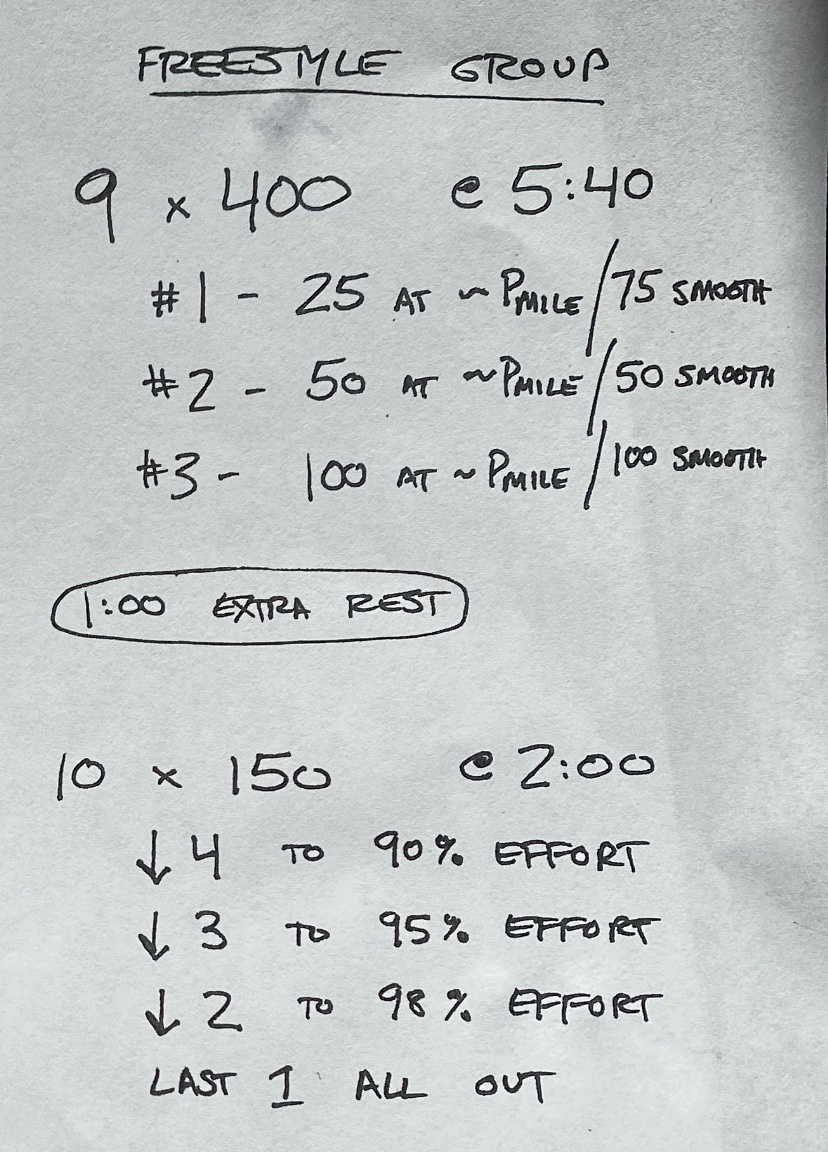 FREESTYLE GROUP
9 x 400 @ 5:40
#1 - 25 AT ~ PMILE / 75 SMOOTH
#2 - 50 AT ~PMILE / 50 SMOOTH
#3 - 100 AT ~ PMILE / 100 SMOOTH
1:00 EXTRA REST
10 x 150 @ 2:00
↓ 4 TO 90% EFFORT
↓ 3 TO 95% EFFORT
↓ 2 TO 98% EFFORT
LAST 1 ALL OUT